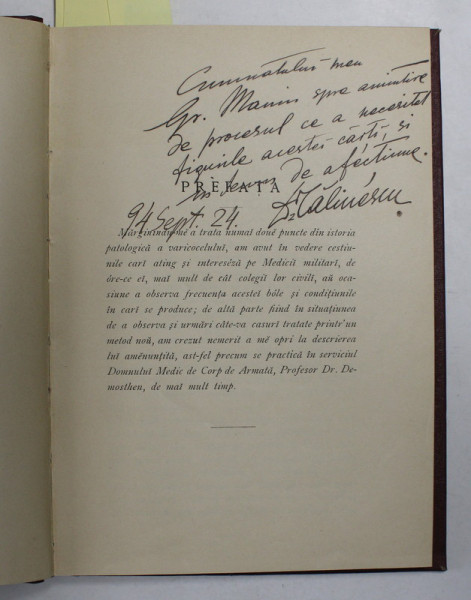 Cumnatului meu
Gr. Maniu spre amintire
de procesul ce a necesitat
figurile acestei cărti, si
in semn de afectiune.
PREFAȚA
Dr Călinescu
94 Sept. 24.
Mărginindu-me a trata numai doue puncte din istoria
patologică a varicocelului, am avut în vedere cestiu-
nile carĭ ating și intereséză pe Medicii militarĭ, de
óre-ce eĭ, maĭ mult de cât colegiĭ lor civilĭ, aŭ oca-
siune a observa frecuența acesteĭ bóle și condițiunile
în carĭ se produce; de altă parte fiind în situațiunea
de a observa și urmări câte-va casurĭ tratate printr'un
metod noŭ, am crezut nemerit a mĕ opri la descrierea
luĭ amĕnunțită, ast-fel precum se practică în serviciul
Domnuluĭ Medic de Corp de Armată, Profesor Dr. De-
mosthen, de maĭ mult timp.